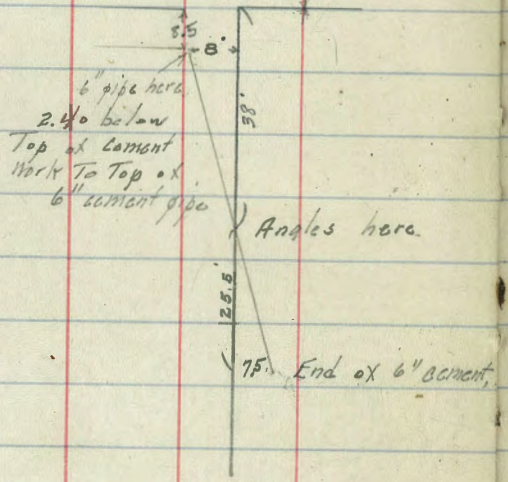 8.5
8'
6" pipe here
38'
2.40 below
Top of cement
Work To Top of
6" cement pipe
Angles here
25.5'
7.5 End of 6" cement,